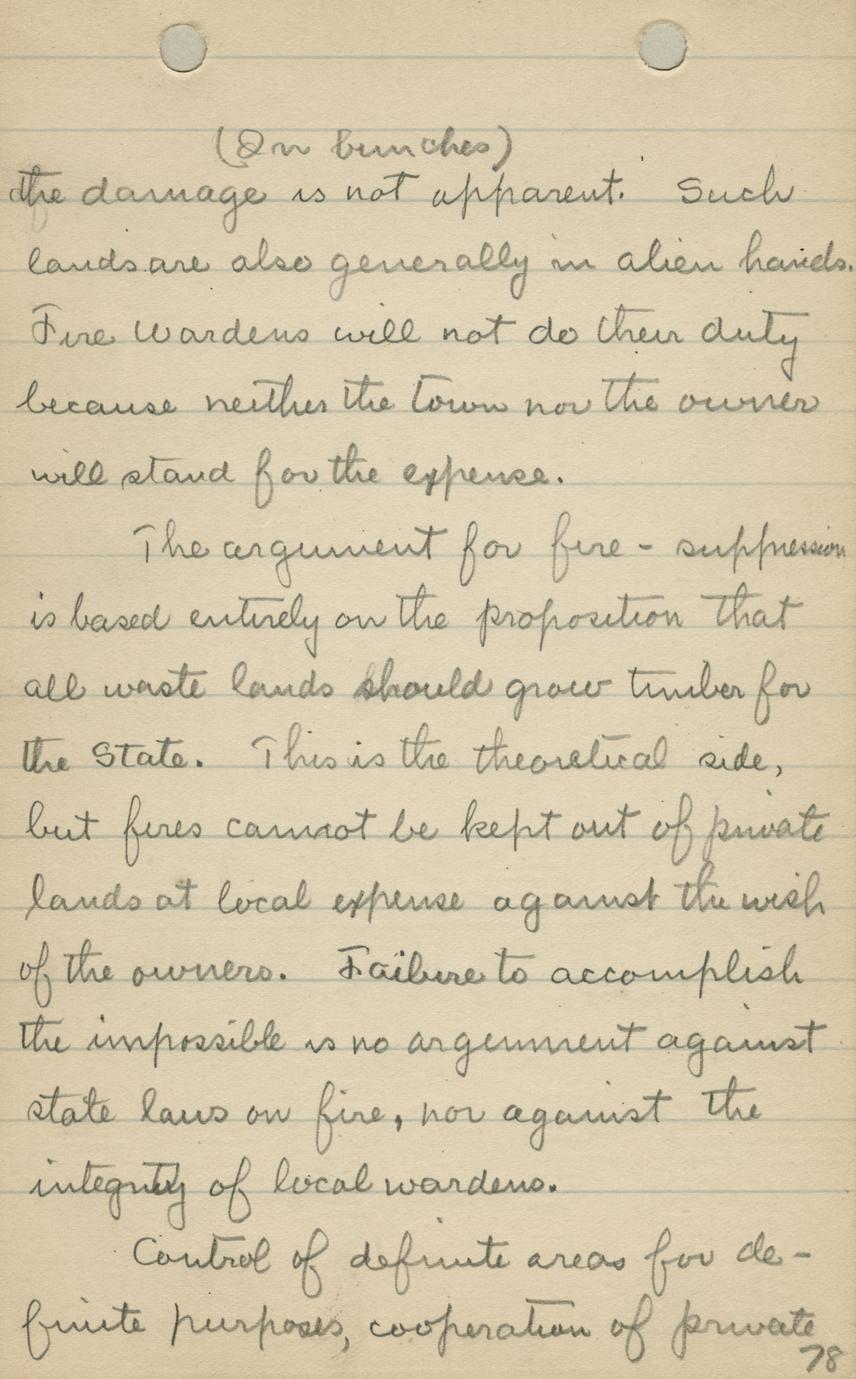 (In bunches)
the damage is not apparent. Such
lands are also generally in alien hands.
Fire Wardens will not do their duty
because neither the town nor the owner
will stand for the expense.
The argument for fire - suppression
is based entirely on the proposition that
all waste lands should grow timber for
the State. This is the theoretical side,
but fires cannot be kept out of private
lands at local expense against the wish
of the owners. Failure to accomplish
the impossible is no argument against
state laws on fire, nor against the
integrity of local wardens.
Control of definite areas for de-
finite purposes, cooperation of private
78